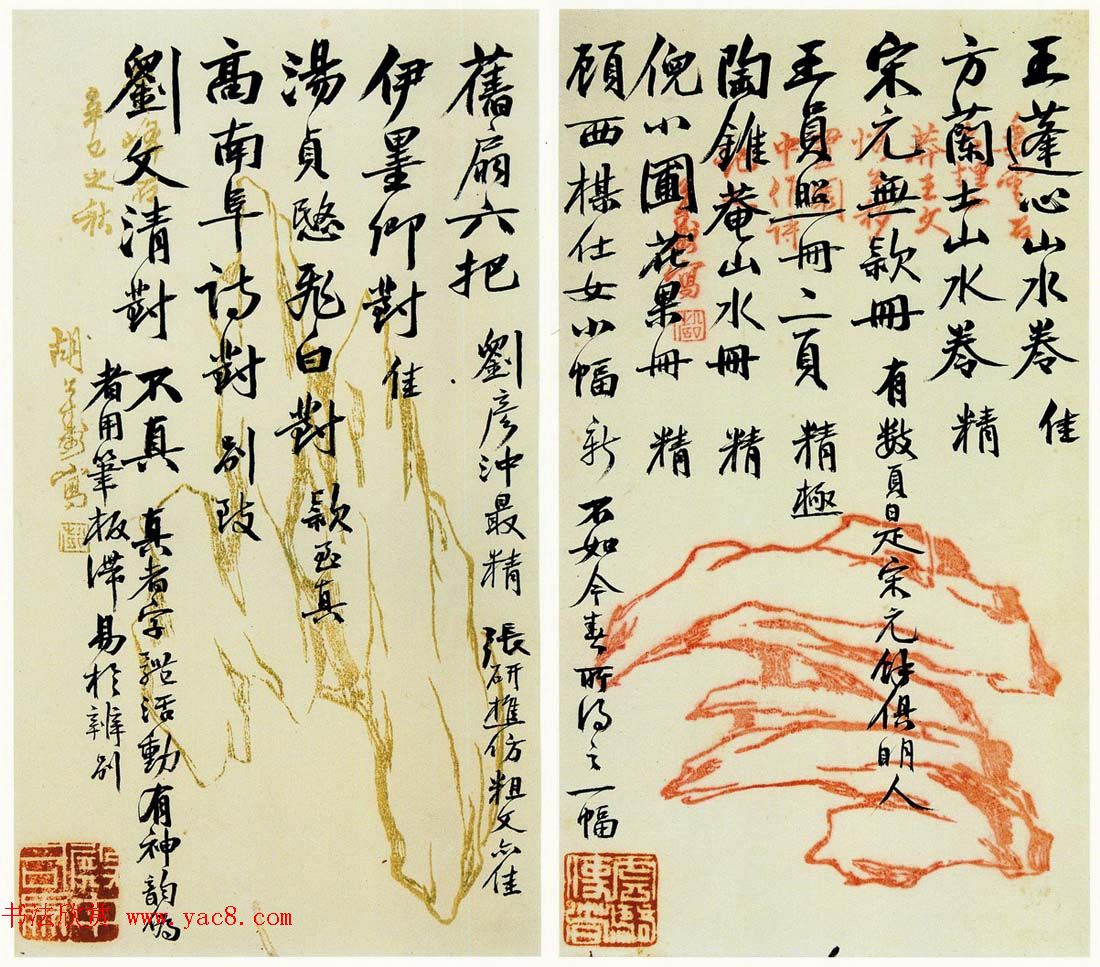 王蓬心山水卷 佳
方蘭士山水卷 精
宋元無款冊 有數頁是宋元餘俱明人
王員照冊二頁 精極
陶錐菴山水冊 精
倪小圃花果冊 精
顧西楳仕女小幅 新 不如今春所得之一幅
舊扇六把 劉彥沖最精 張研樵仿粗文亦佳
伊墨卿對 佳
湯貞愍飛白對 款至真
高南阜詩對 別致
劉文清對 不真 真者字豁活動有神韵偽
者用筆板滯易於辨別
辛巳之秋
书法欣赏 www.yac8.com